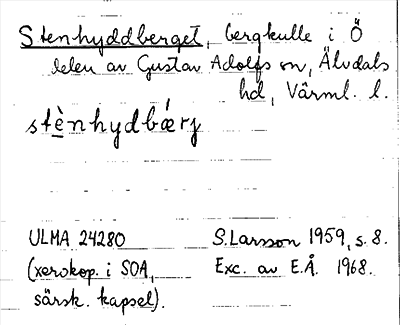 Stenhyddberget, bergkulle i Ö
delen av Gustav Adolfs sn, Älvdals
hd, Värml. l.
stè̠nhydbǽrj
ULMA 24280 S. Larsson 1959, s. 8.
(xerokop. i SOA, Exc. av E.Å. 1968.
särsk. kapsel).